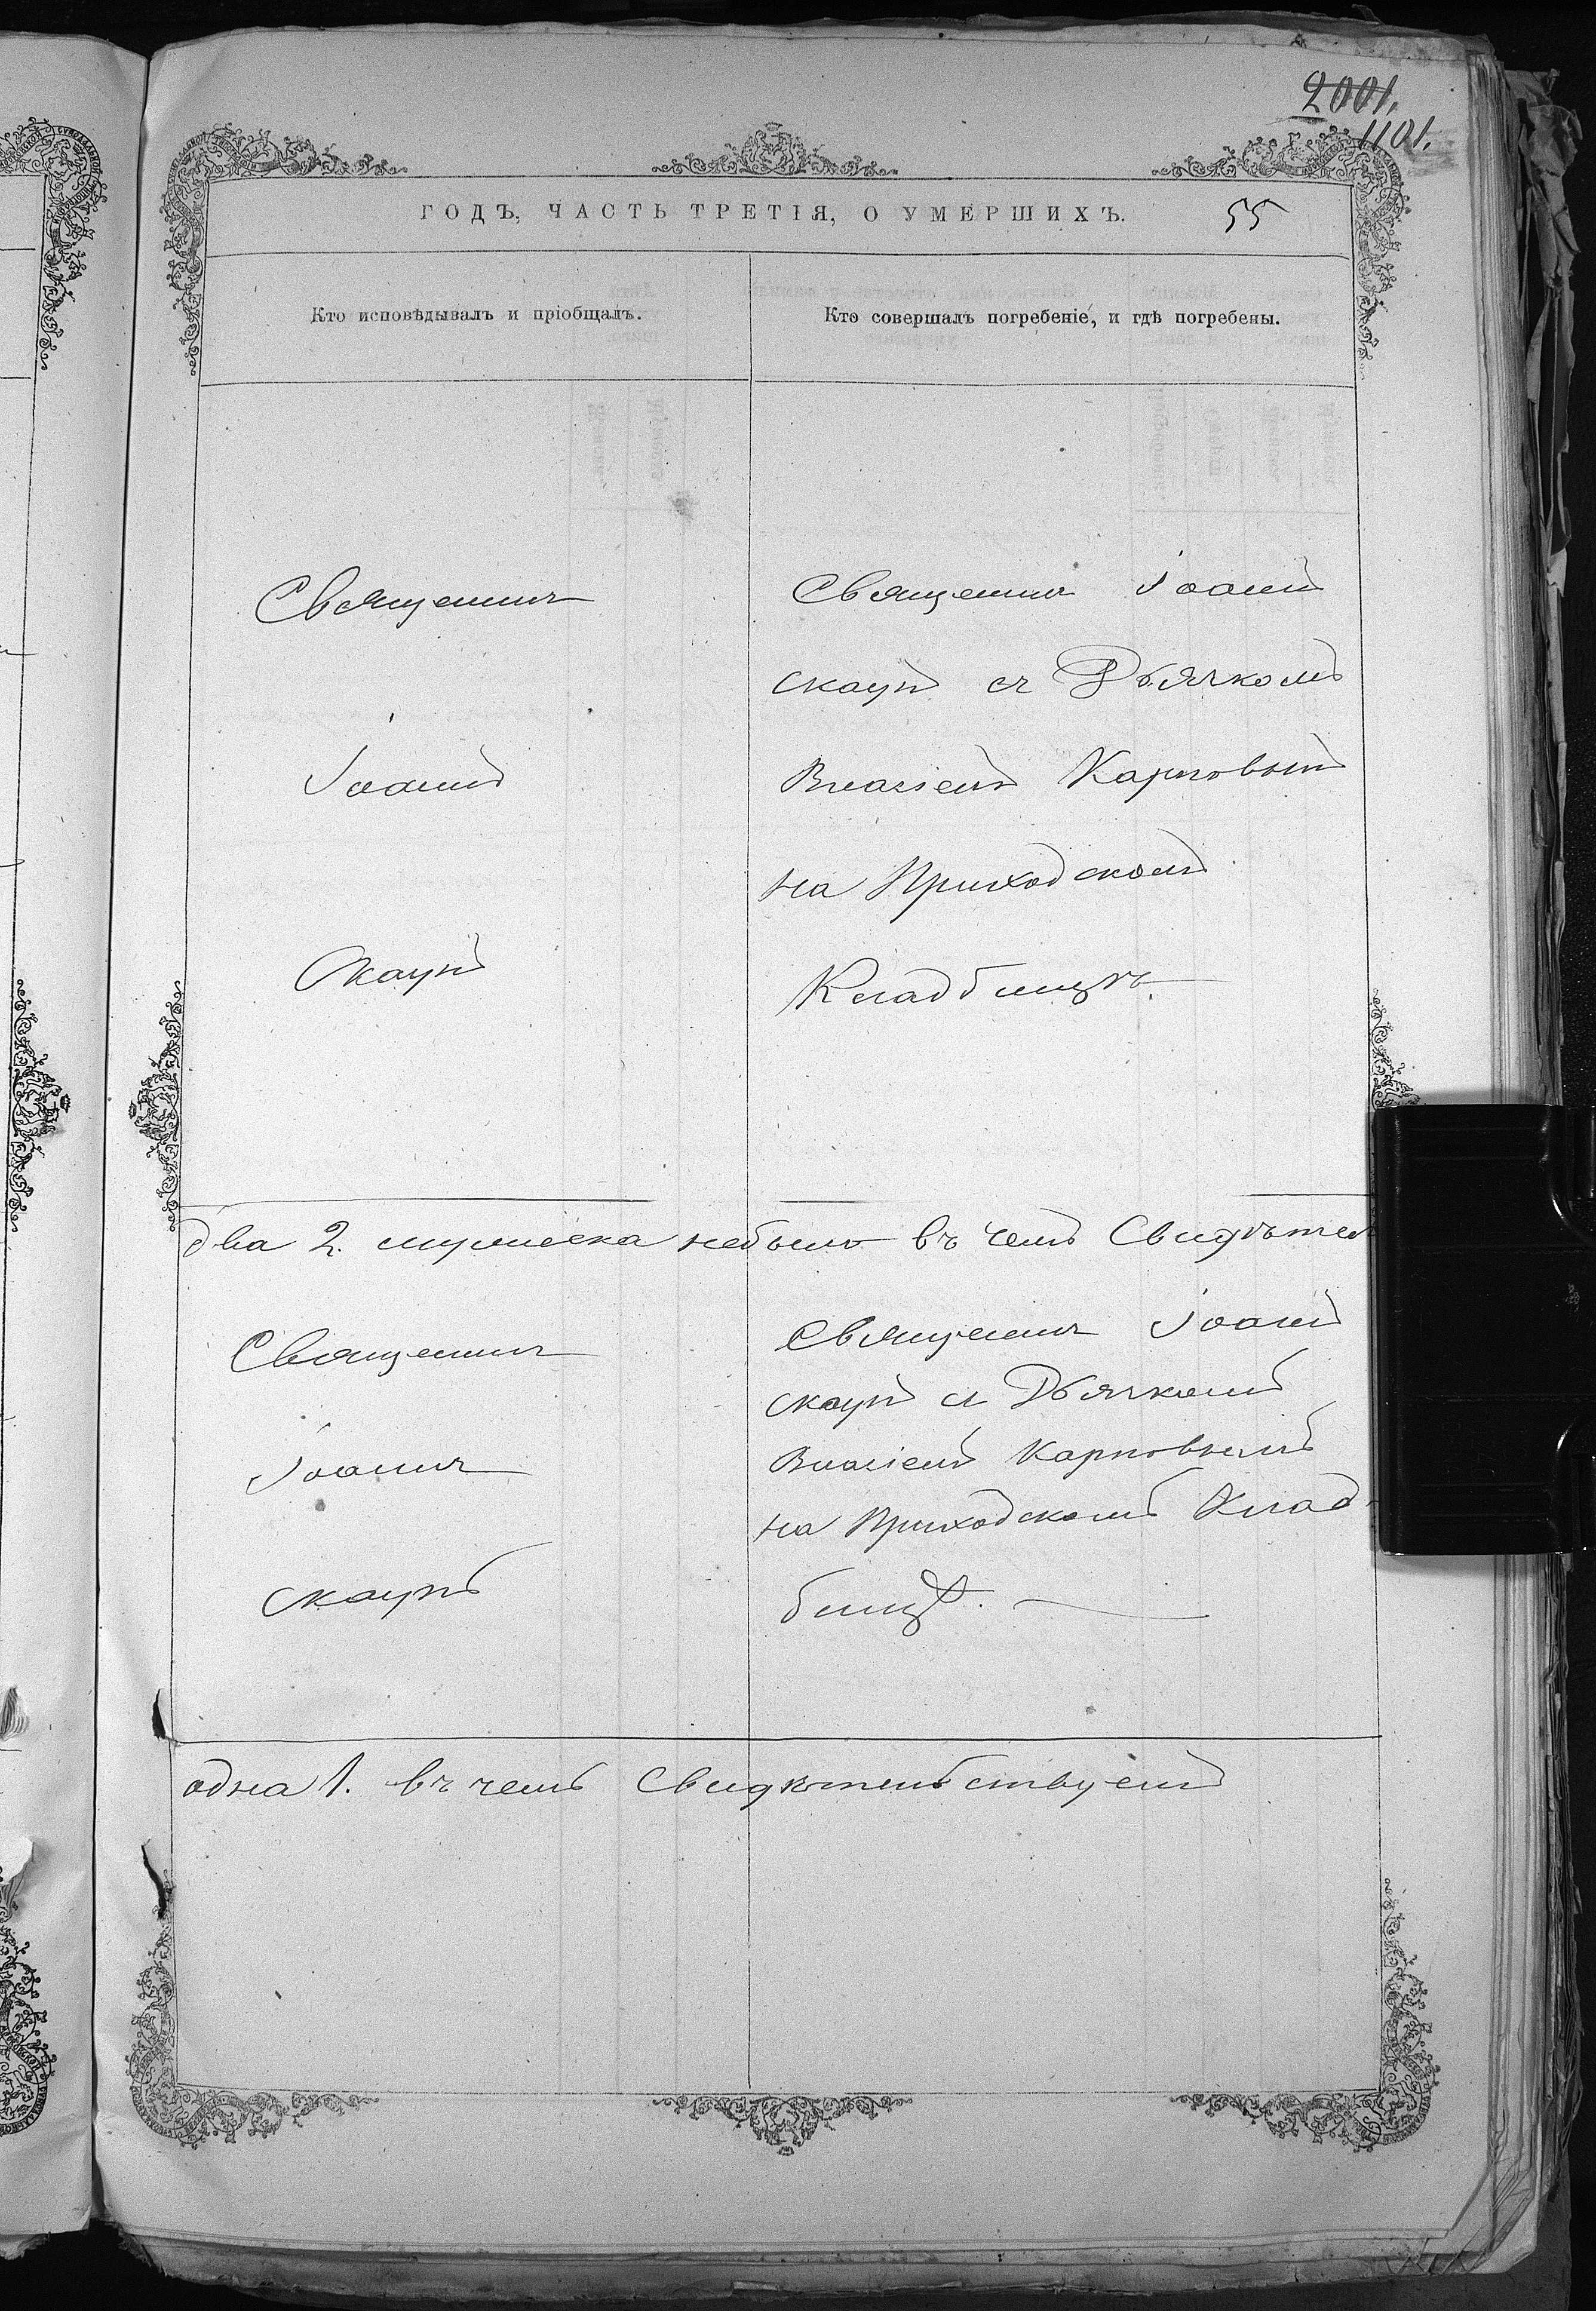 2001.
1101.
ГОДЪ, ЧАСТЬ ТРЕТІЯ, О УМЕРШИХЪ. 55
Кто исповѣдывалъ и пріобщалъ.
Кто совершалъ погребеніе, и гдѣ погребены.
Священникъ
Іоаннъ
Скаунъ
Священникъ Іоаннъ
Скаунъ съ Дьячкомъ
Власіемъ Карповымъ
на Приходскомъ
Кладбищѣ.
два 2. мужеска небыло въ чемъ Свидѣтел
Священникъ
Іоаннъ
Скаунъ
Священникъ Іоаннъ
Скаунъ съ Дьячкомъ
Власіемъ Карповымъ
на Приходскомъ Клад-
бищѣ.
одна 1. въ чемъ Свидѣтельствуемъ